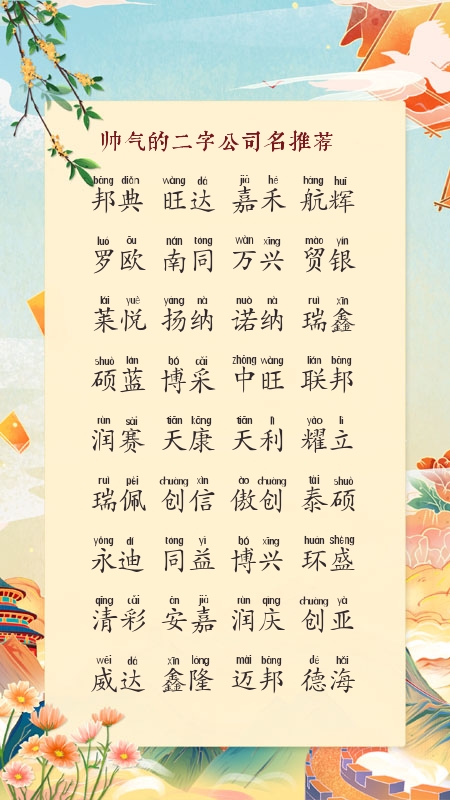 帅气的二字公司名推荐
bāng diǎn wàng dá jiā hé háng huī
邦典 旺达 嘉禾 航辉
luó ōu nán tóng wàn xīng mào yín
罗欧 南同 万兴 贸银
lái yuè yáng nà nuò nà ruì xīn
莱悦 扬纳 诺纳 瑞鑫
shuò lán bó cǎi zhōng wàng lián bāng
硕蓝 博采 中旺 联邦
rùn sài tiān kāng tiān lì yào lì
润赛 天康 天利 耀立
ruì pèi chuàng xìn ào chuàng tài shuò
瑞佩 创信 傲创 泰硕
yǒng dí tóng yì bó xīng huán shèng
永迪 同益 博兴 环盛
qīng cǎi ān jiā rùn qìng chuàng yà
清彩 安嘉 润庆 创亚
wēi dá xīn lóng mài bāng dé hǎi
威达 鑫隆 迈邦 德海